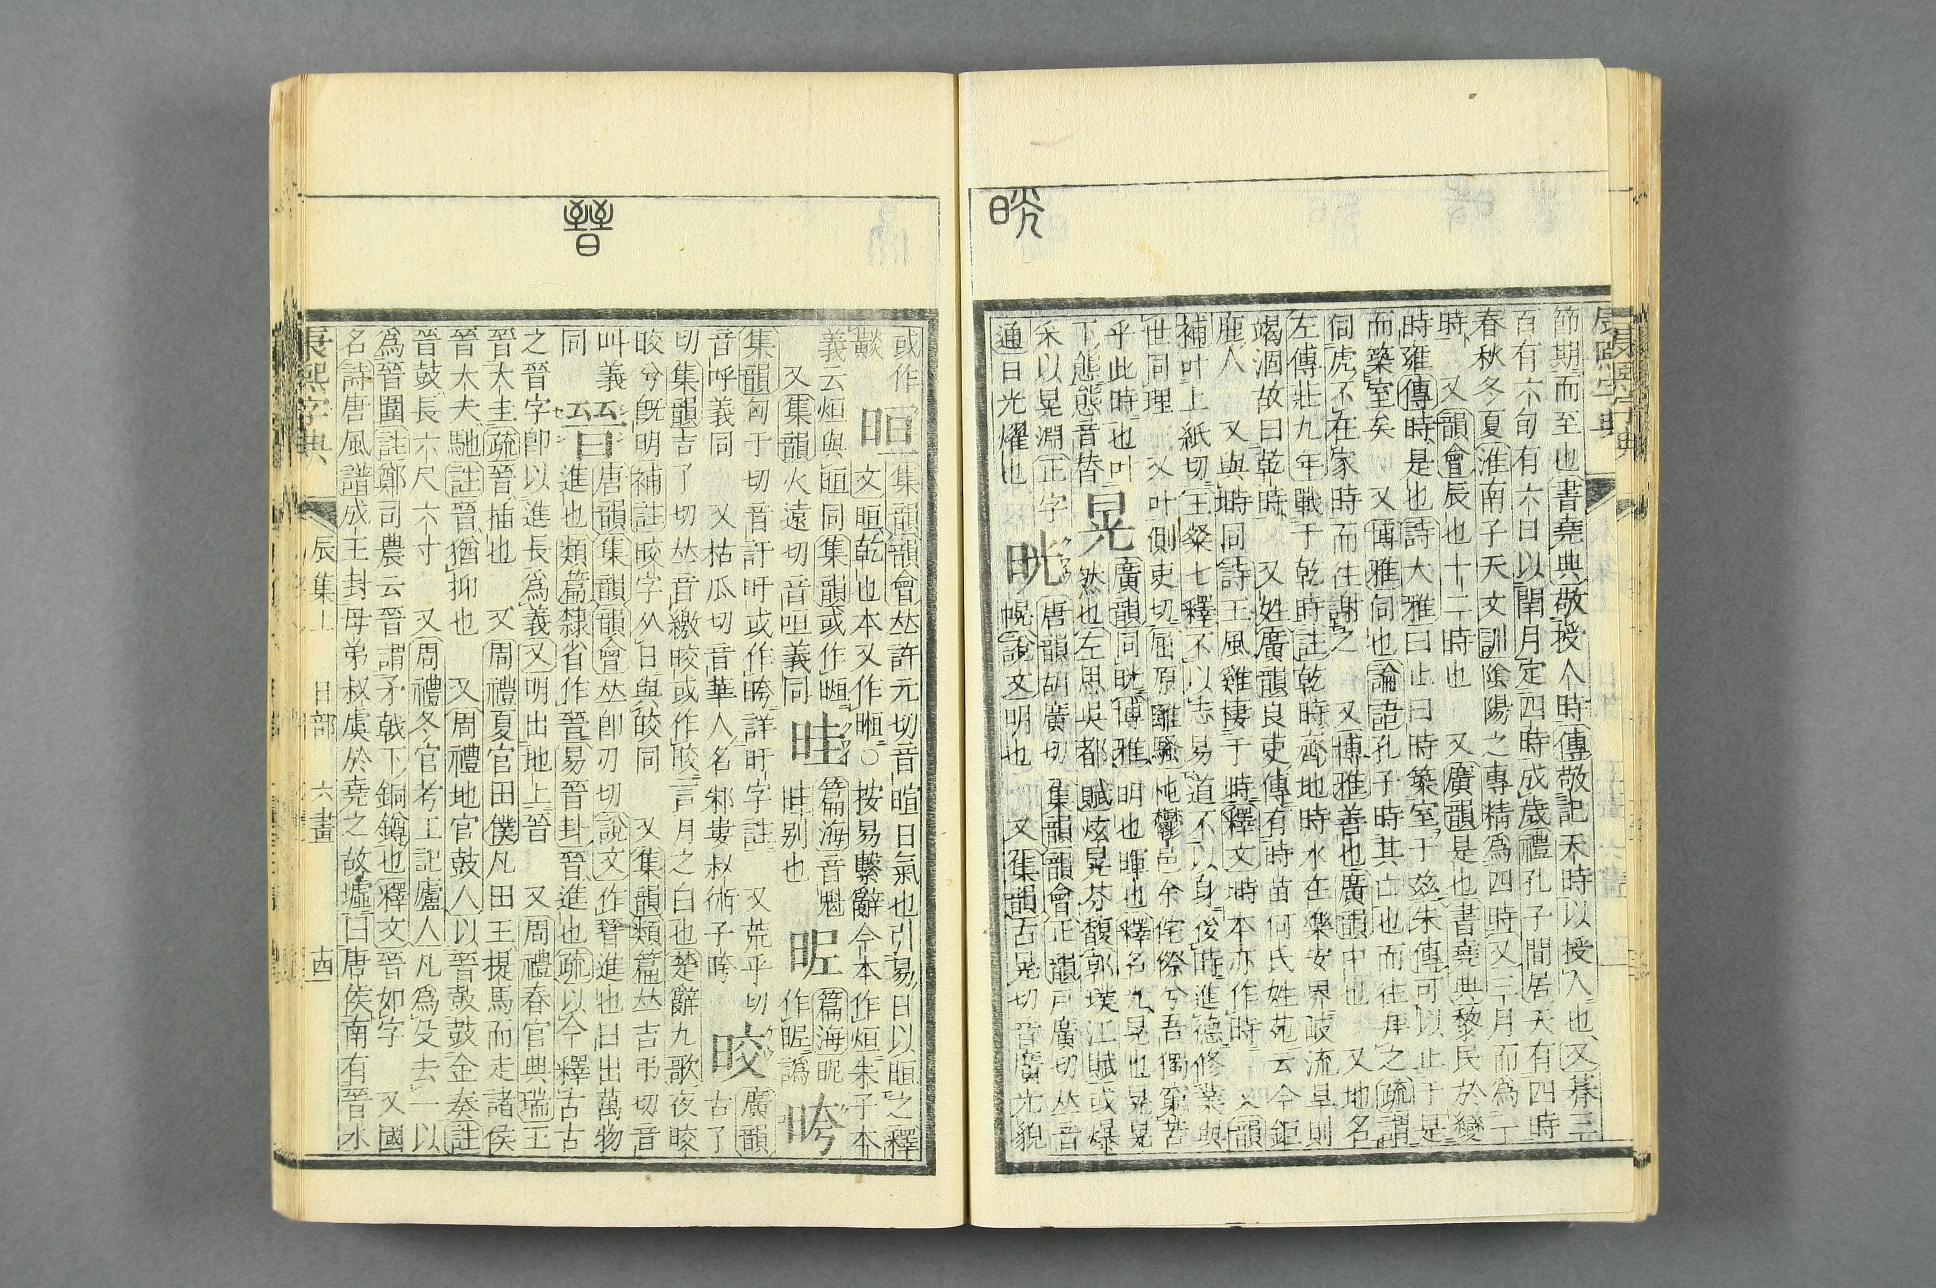 晄
節期而至也書堯典敬授人時傳敬記天時以授人也又朞三
百有六旬有六日以閏月定四時成歲禮孔子閒居天有四時
春秋冬夏淮南子天文訓陰陽之專精為四時又三月而為一
時又韻會辰也十二時也又廣韻是也書堯典黎民於變
時雍傳時是也詩大雅曰止曰時築室于茲朱傳可以止于是
而築室矣又博雅伺也論語孔子時其亡也而往拜之疏謂
伺虎不在家時而往謝之又博雅善也廣韻中也又地名
左傳莊九年戰于乾時註乾時齊地時水在樂安界岐流旱則
竭涸故曰乾時又姓廣韻良吏傳有時苗何氏姓苑云今鉅
鹿人又與塒同詩王風雞棲于時釋文塒本亦作時又韻
補叶上紙切王粲七釋不以志易道不以身後時進德修業與
世同理又叶側吏切屈原離騷忳鬱邑余侘傺兮吾獨窮苦
乎此時也叶下態態音替
晃廣韻同晄博雅明也暉也釋名光晃也晃晃
然也左思吳都賦炫晃芬馥郭璞江賦或爆
采以晃淵正字通日光燿也
晄唐韻胡廣切集韻韻會正韻戸廣切𠀤音
幌說文明也又集韻古晃切音廣光貌
晉
或作
晅集韻韻會𠀤許元切音暄日氣也引易日以晅之釋
文晅乾也本又作暅○按易繫辭今本作烜朱子本
義云烜與晅同集韻或作暅又集韻火遠切音咺義同
哇篇海音魁
畦別也
昵篇海昵
作昵譌
晇
集韻匈于切音訏旴或作晇詳旴字註又荒乎切
音呼義同又枯瓜切音華人名邾婁叔術子晇
晈廣韻古了
切集韻吉了切𠀤音繳晈或作皎言月之白也楚辭九歌夜晈
晈兮旣明補註晈字从日與皎同又集韻類篇𠀤吉弔切音
叫義同
晉唐韻集韻韻會𠀤卽刃切說文作㬜進也日出萬物
進也類篇隸省作晉易晉卦晉進也疏以今釋古古
之晉字卽以進長為義又明出地上晉又周禮春官典瑞王
晉大圭疏晉插也又周禮夏官田僕凡田王提馬而走諸侯
晉大夫馳註晉猶抑也又周禮地官鼓人以晉鼓鼓金奏註
晉鼓長六尺六寸又周禮冬官考工記廬人凡為殳去一以
為晉圍註鄭司農云晉謂矛戟下銅鐏也釋文晉如字又國
名詩唐風譜成王封母弟叔虞於堯之故墟曰唐侯南有晉水
康熙字典 辰集上 日部 六畫